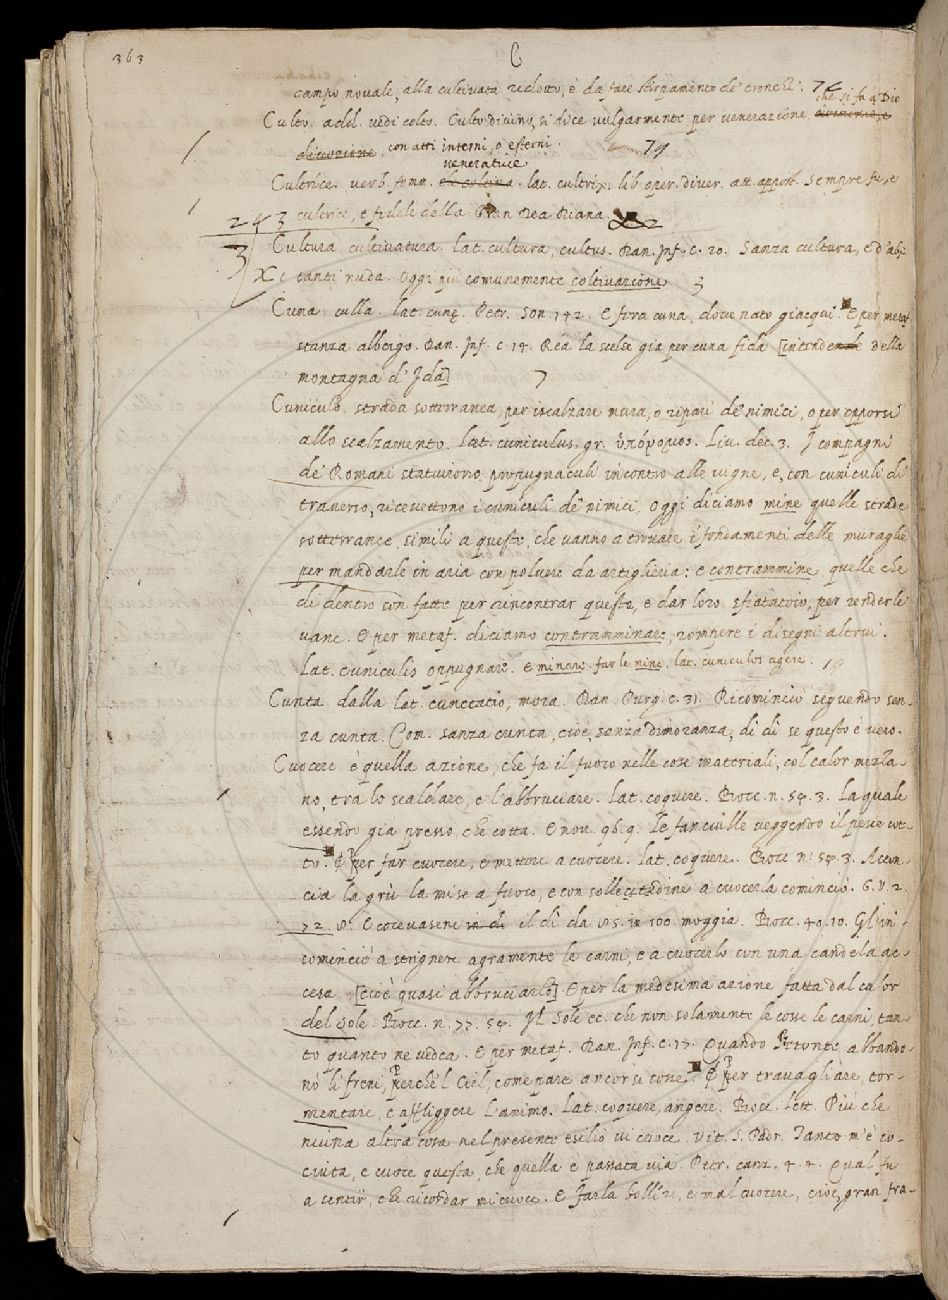 363
C
campo novale, alla cultivata ridotto, è da fare stirpamento de' tronchi. 74
che si fa a Dio
Culto. add. vedi colto. Culto divino, si dice vulgarmente per venerazione,
divozione con atti interni, o esterni. 79
veneratrice
Cultrice. verb. femm. lat. cultrix. lib. oper. diver. att. appost. Sempre fu, e
243 cultrice, e fidele della Gran Rea Diana
3 Cultura. cultivatura. lat. cultura, cultus. Dan. Inf. c. 20. Sanza cultura, e d'abi-
X tanti nuda. Oggi più comunemente coltivazione 3
Cuna. culla. lat. cunę. Petr. Son. 142. E fera cuna, dove nato giacqui. E per metaf.
stanza albergo. Dan. Inf. c. 14. Rea la scelse già per cuna fida [intende della
montagna d'Ida] 7
Cuniculo. strada sotterranea, per iscalzare mura, o ripari de' nimici, o per opporsi
allo scalzamento. Lat. cuniculus. gr. ὑπόνομος. Liv. dec. 3. I compagni
de' Romani statuirono propugnaculi incontro alle vigne, e, con cuniculi di
traverso, ricevettono i cuniculi de' nimici. Oggi diciamo mine quelle strade
sotterrance, simili a questo, che vanno a trovare i fondamenti delle muraglie
per mandarle in aria con polvere da artiglieria: e contrammine quelle che
di dentro son fatte per rincontrar queste, e dar loro sfiatatoio, per renderle
vane. E per metaf. diciamo contramminare, rompere i disegni altrui.
Lat. cuniculis oppugnare. E minare. far le mine. lat. cuniculos agere. 19
Cunta dalla lat. cunctatio, mora. Dan. Purg. c. 31. Ricominciò seguendo san-
za cunta. Com. sanza cunta, cioè, sanza dimoranza, di di se questo è vero.
Cuocere è quella azione, che fa il fuoco nelle cose materiali, col calor mezza-
no, tra lo scaldare, e l'abbruciare. Lat. coquere. Bocc. n. 54. 3. La quale
essendo già presso, che cotta. E nov. 96. 9. Le fanciulle veggendo il pesce cot-
to. E per far cuocere, e mettere a cuocere. lat. coquere. Bocc. n. 54. 3. Accon-
cia la grù la mise a fuoco, e con sollecitudine a cuocerla cominciò. G. V. 2.
72. 5. E cocevasene in di il dì da 85. in 100. moggia. Bocc. 40. 10. Gl'in-
cominciò a strignere agramente le carni, e a cuocerlo con una candela ac-
cesa. [cioè quasi abbruciarlo] E per la medesima azione fatta dal calor
del Sole. Bocc. n. 77. 54. Il Sole ec. che non solamente le cosse le carni, tan-
to quanto ne vedea. E per metaf. Dan. Inf. c. 17. Quando Fetonte abbando-
nò li freni, Perchè'l Ciel, come pare ancor, si cosse. E per travagliare, tor-
mentare, e affliggere l'animo. Lat. coquere, angere. Bocc. lett. Più che
niuna altra cosa nel presente esilio vi cuoce. Vit. S. Padr. Tanto m'è co-
ciuta, e cuoce questa, che quella è passata via. Petr. canz. 4. 4. Qual fu
a sentir, che ricordar mi cuoce. E farla bollire, e mal cuocere, cioè gran fra-